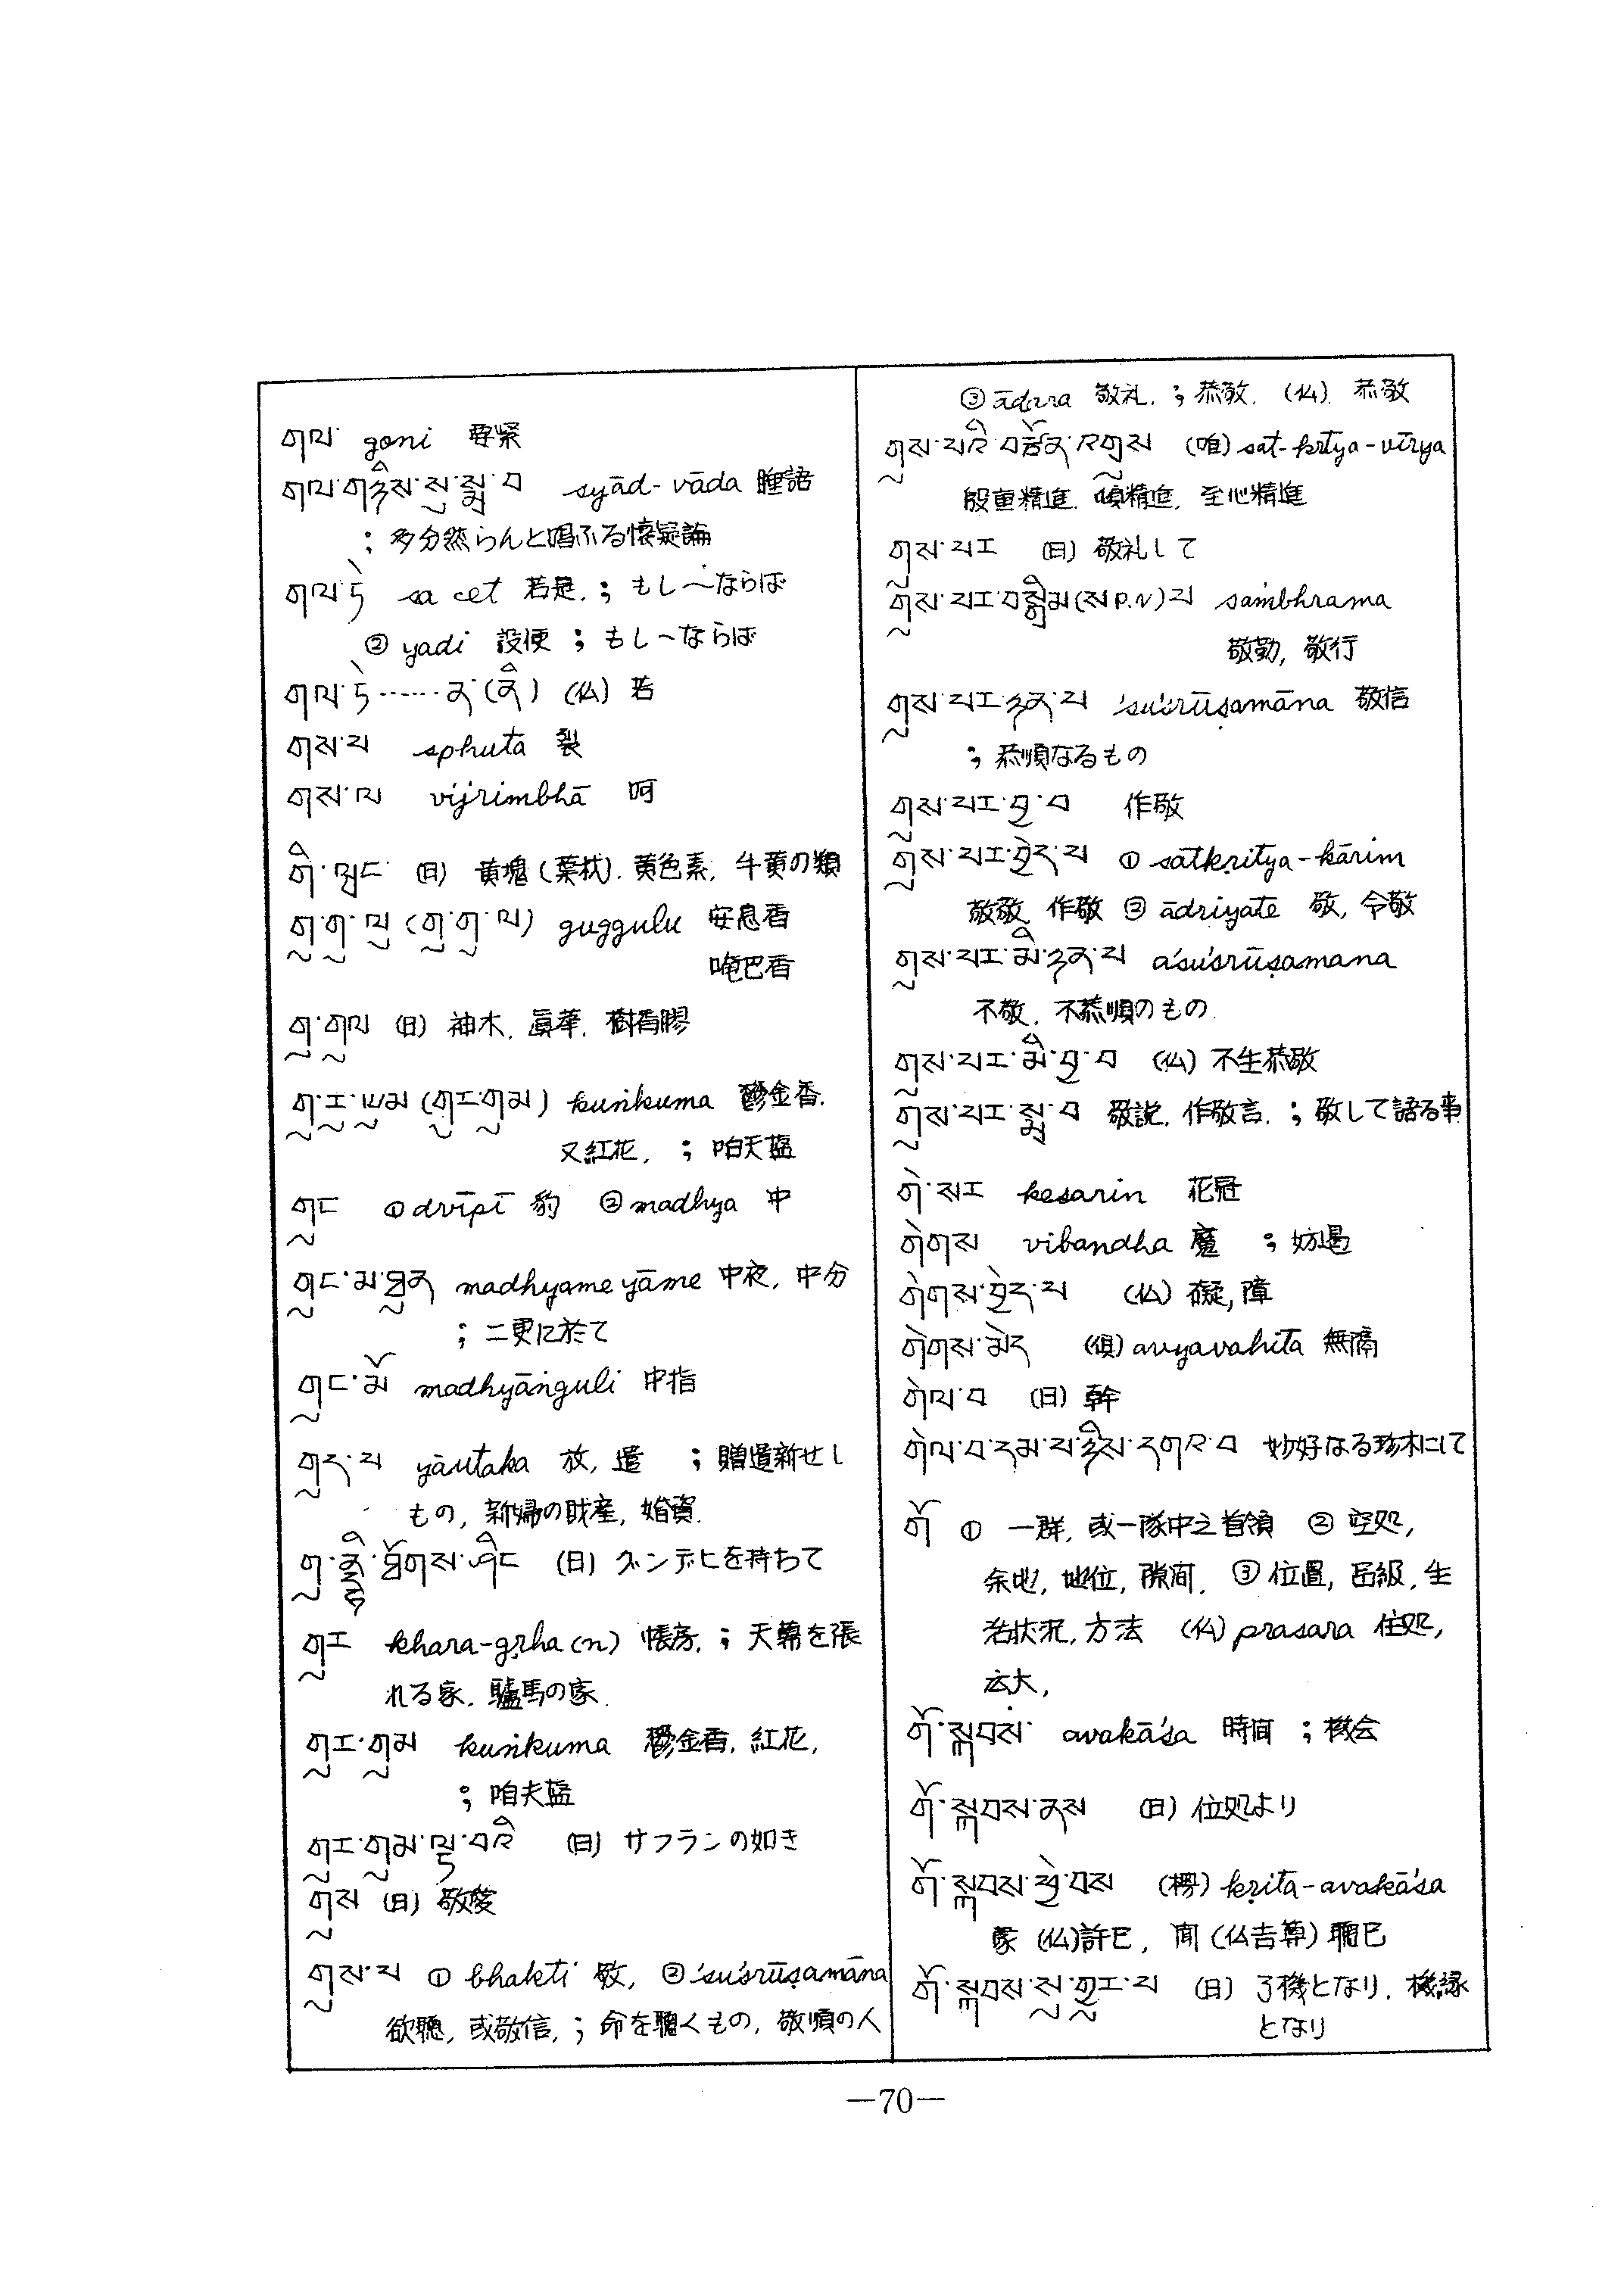 གལ་ goni 要緊
གལ་གཉིས་སུ་སྨྲ་བ syād-vāda 睡語
; 多分然らんと唱ふる懐疑論
གལ་ཏེ sa cet 若是. ; もし〜ならば
② yadi 設使 ; もし〜ならば
གལ་ཏེ......ན་(ནི) (仏) 若
གས་པ sphuta 裂
གསལ vijrimbhā 呵
གི་ཝང (日) 黄塊(葉枕). 黄色素, 牛黄の類
གུ་གུ་ལུ (གུ་གུ་ལ) guggulu 安息香
唵巴香
གུ་གུལ (日) 神木. 眞華. 樹香膠
གུ་རུ་ཡུམ (གུར་གུམ) kuṅkuma 鬱金香.
又紅花. ; 咱夫藍
གུང ① dvīpī 豹 ② madhya 中
གུང་མ་ཐུན madhyame yāme 中夜, 中分
; 二更に於て
གུང་མོ madhyāṅguli 中指
གུད་པ yāutaka 放, 遣 ; 贈遺新せし
もの, 新婦の財産, 婚資.
གུ་ནྡྷེ་ཐོགས་ཤིང (日) グンデヒを持ちて
གུར khara-gṛha (n) 帳房. ; 天幕を張
れる家. 驢馬の家.
གུར་གུམ kuṅkuma 鬱金香. 紅花,
; 咱夫藍
གུར་གུམ་ལྟ་བའི (日) サフランの如き
གུས (日) 敬愛
གུས་པ ① bhakti 敬, ② śuśrūṣamāna
欲聴, 或敬信, ; 命を聴くもの, 敬順の人
③ ādara 敬礼. ; 恭敬. (仏). 恭敬
གུས་པའི་བརྩོན་འགྲུས (唯) sat-kṛtya-vīrya
殷重精進. 頓精進. 至心精進
གུས་པར (日) 敬礼して
གུས་པར་བསྒྲིམ(ས P.N)པ saṁbhrama
敬勤, 敬行
གུས་པར་ཉན་པ śuśrūṣamāna 敬信
; 恭順なるもの
གུས་པར་བྱ་བ 作敬
གུས་པར་བྱེད་པ ① satkṛitya-kārim
敬敬, 作敬 ② ādriyate 敬, 令敬
གུས་པར་མི་ཉན་པ aśuśrūṣamana
不敬. 不恭順のもの.
གུས་པར་མི་བྱ་བ (仏) 不生恭敬
གུས་པར་སྨྲ་བ 敬説. 作敬言. ; 敬して語る事
གེ་སར kesarin 花冠
གེགས vibandha 魔 ; 妨遏
གེགས་བྱེད་པ (仏) 礙, 障
གེགས་མེད (倶) avyavahita 無隔
གེལ་བ (日) 幹
གེལ་བ་དམ་པ་ཉིས་དགའ་བ 妙好なる珍木にて
གོ ① 一群, 或一隊中之首領 ② 空処,
余地, 地位, 隙間. ③ 位置, 品級, 生
治状況, 方法 (仏) prasara 住処,
広大,
གོ་སྐབས avakāśa 時間 ; 機会
གོ་སྐབས་ནས (日) 位処より
གོ་སྐབས་ཕྱེ་བས (梵) kṛita-avakāśa
蒙 (仏)許巳, 聞 (仏吉尊) 聴巳
གོ་སྐབས་སུ་གྱུར་པ (日) 了機となり. 機縁
となり
—70—